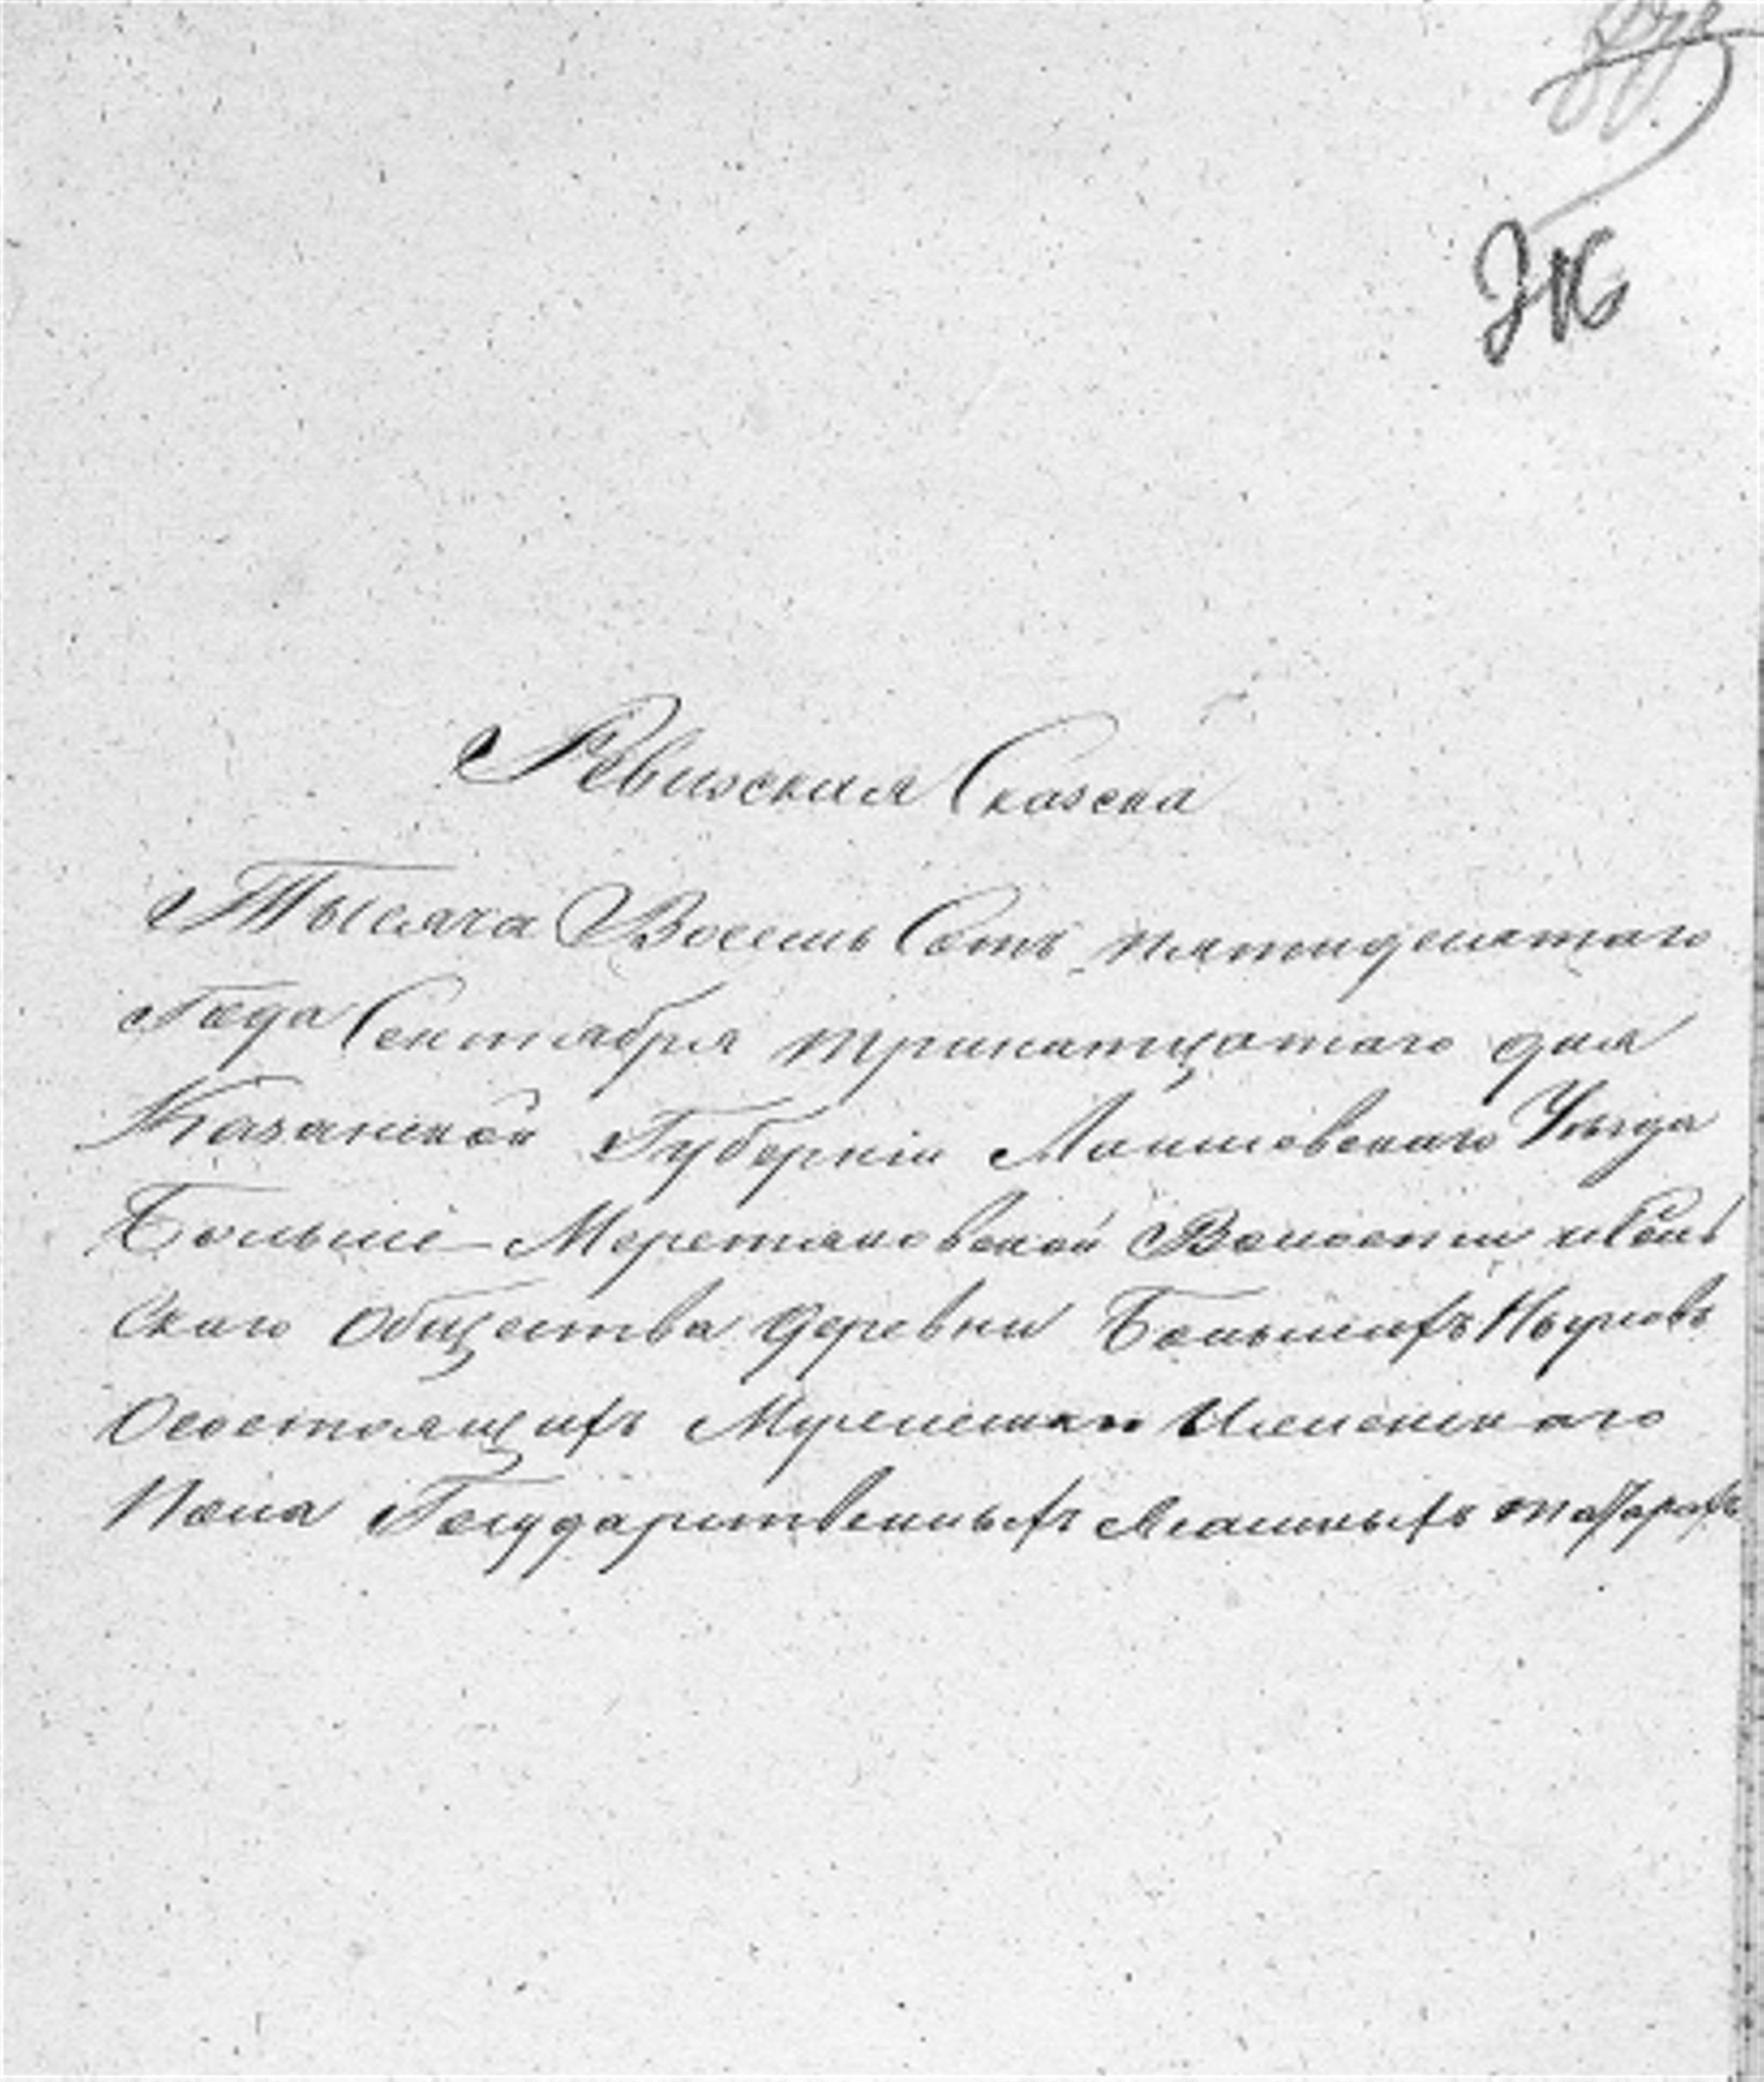 316
Ревизская Сказска
Тысяча Восемь Сотъ пятидесятаго
Года Сентября тринатцатаго дня
Казанской Губерніи Лаишевскаго Уѣзда
Больше-Меретяковской Волости и Сель
скаго Общества деревни Большихъ Нырсовъ
Осостоящихъ Мужеска и Женскаго
Пола Государственныхъ Ясашныхъ татарахъ